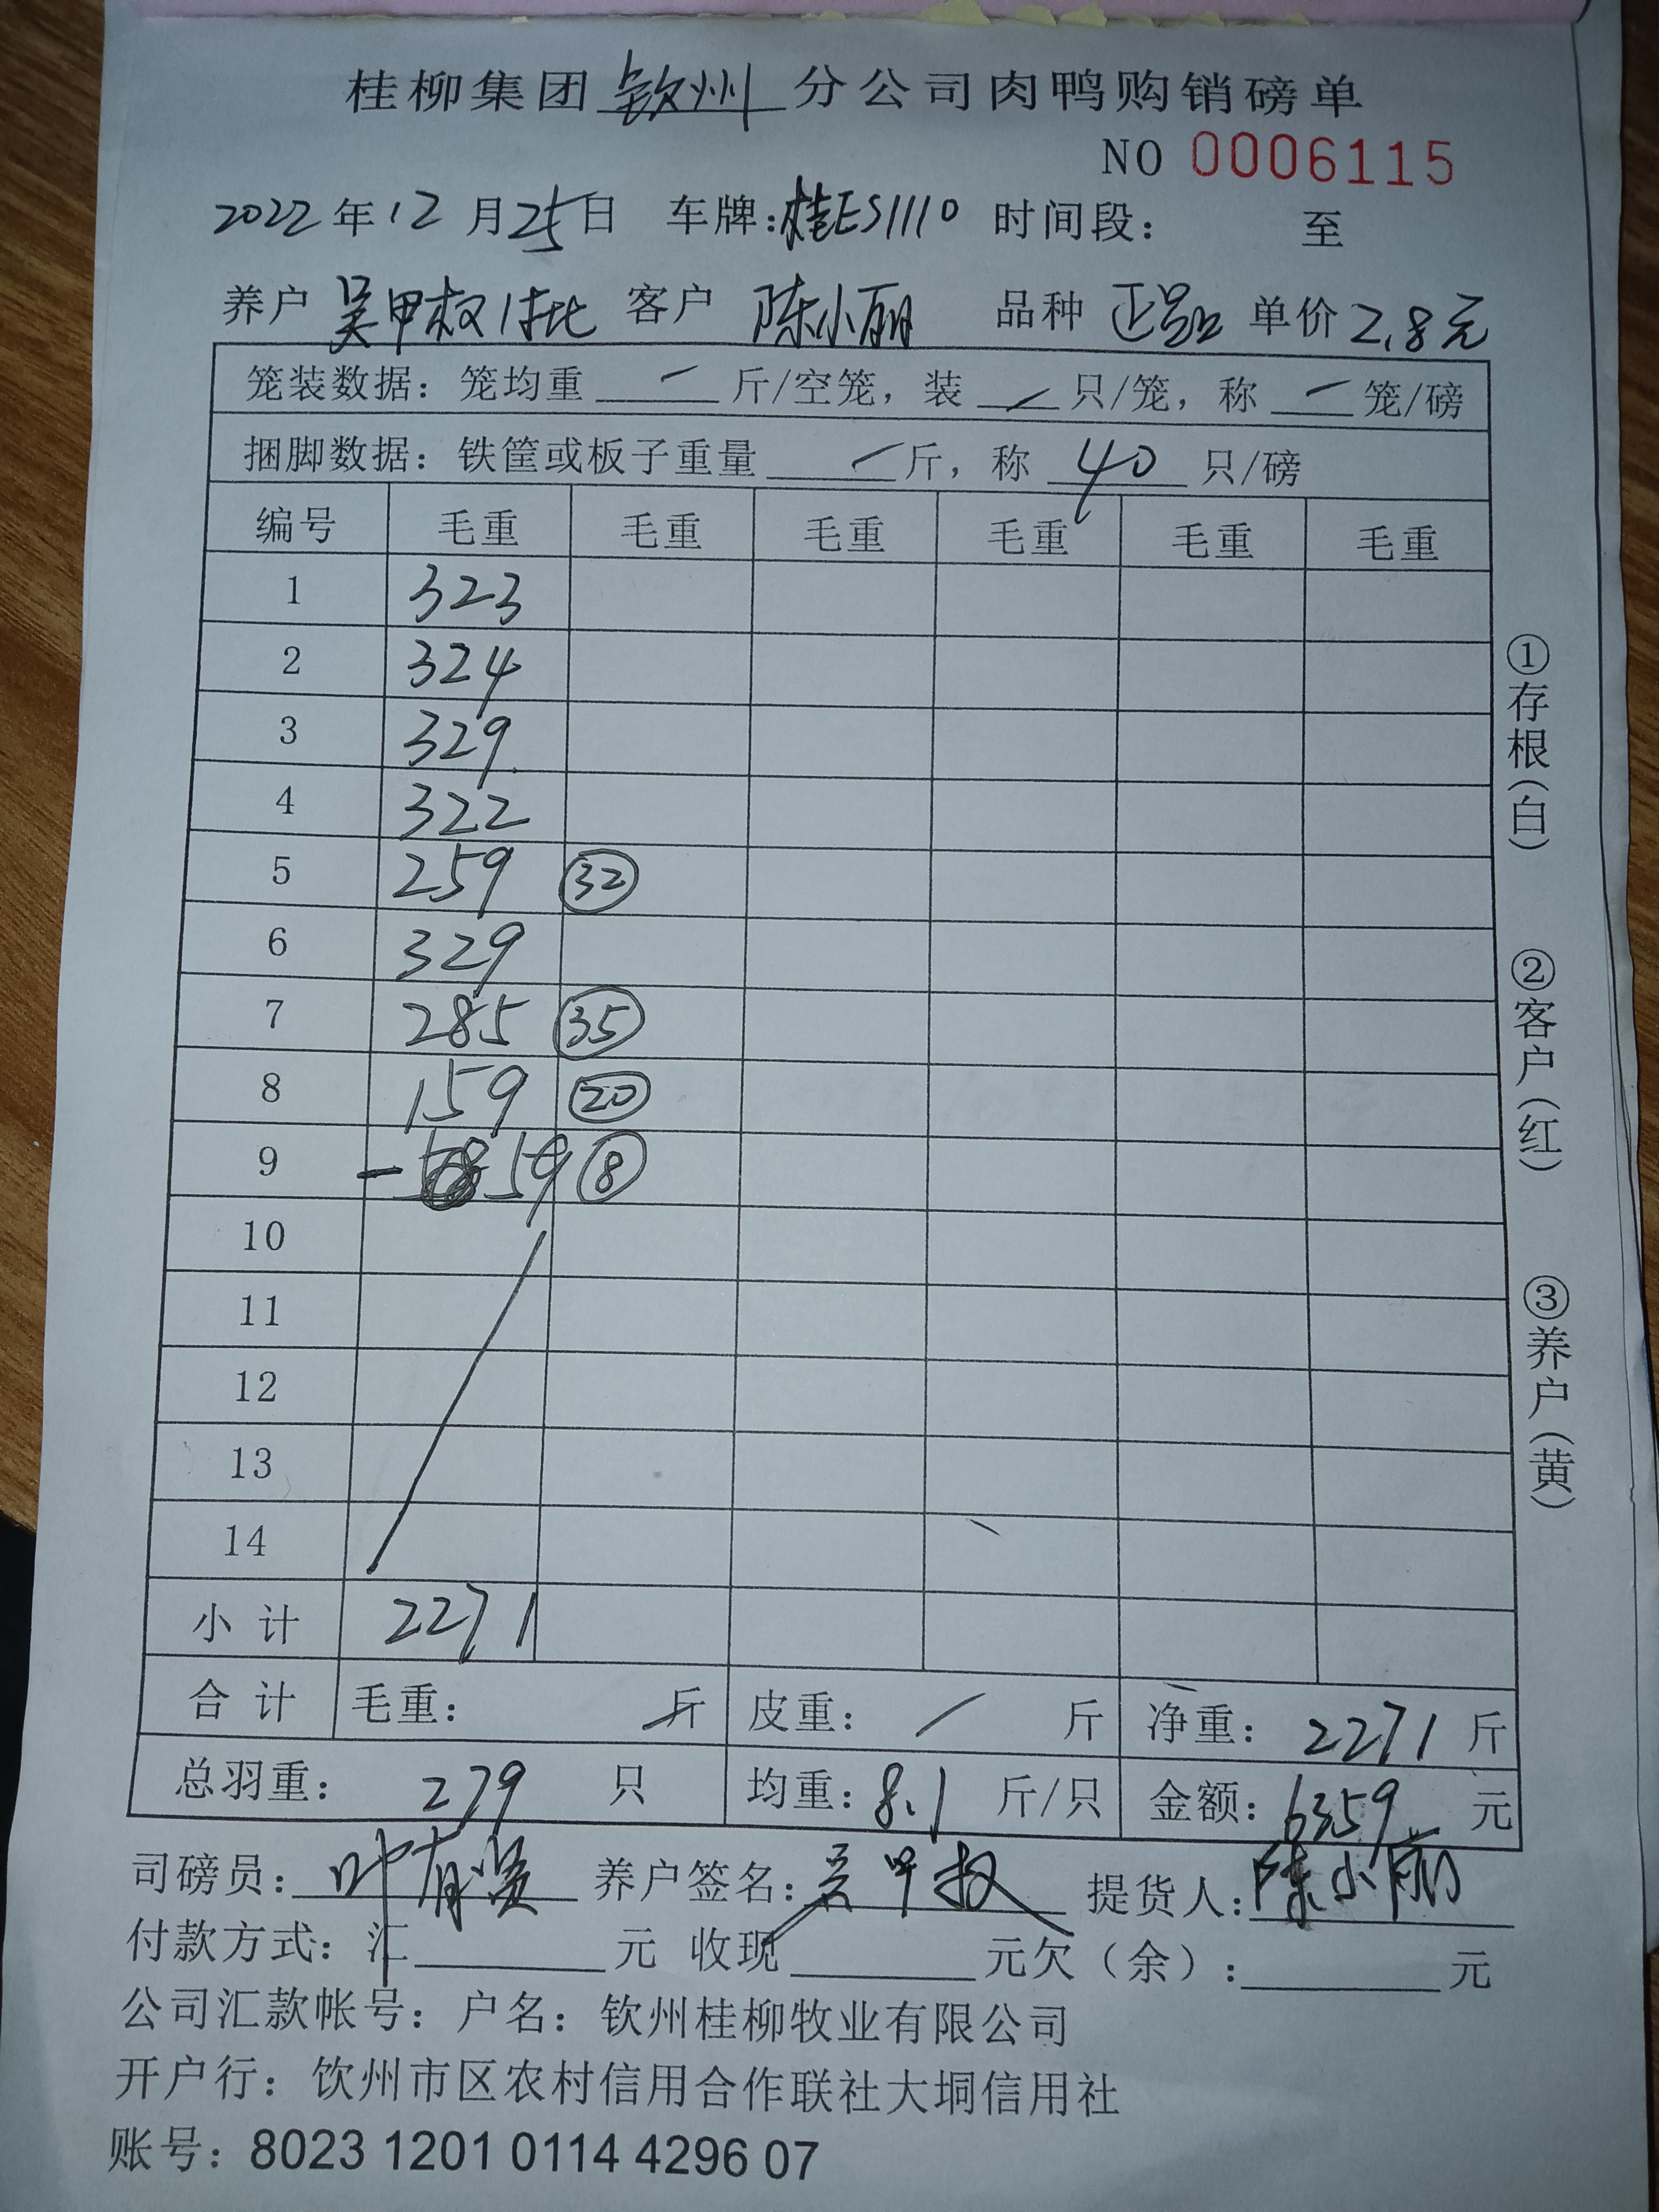 桂柳集团钦州分公司肉鸭购销磅单
NO 0006115
2022年12月25日 车牌:桂ES1110 时间段: 至
养户 吴甲权 客户 陈小丽 品种 正品 单价 2.8元
笼装数据:笼均重 — 斤/空笼,装 — 只/笼,称 — 笼/磅
捆脚数据:铁筐或板子重量 — 斤,称 40 只/磅
编号 毛重 毛重 毛重 毛重 毛重 毛重
1 323
2 324
3 329
4 322
5 259 ㉜
6 329
7 285 ㉟
8 159 ⑳
9 -59 ⑧
10
11
12
13
14
小计 2271
合计 毛重: 斤 皮重: / 斤 净重: 2271 斤
总羽重: 279 只 均重: 8.1 斤/只 金额: 6359 元
司磅员: 叶有贤 养户签名: 吴甲权 提货人: 陈小丽
付款方式: 汇 元 收现 元欠(余): 元
公司汇款帐号: 户名: 钦州桂柳牧业有限公司
开户行: 钦州市区农村信用合作联社大垌信用社
账号: 8023 1201 0114 4296 07
①存根(白)
②客户(红)
③养户(黄)